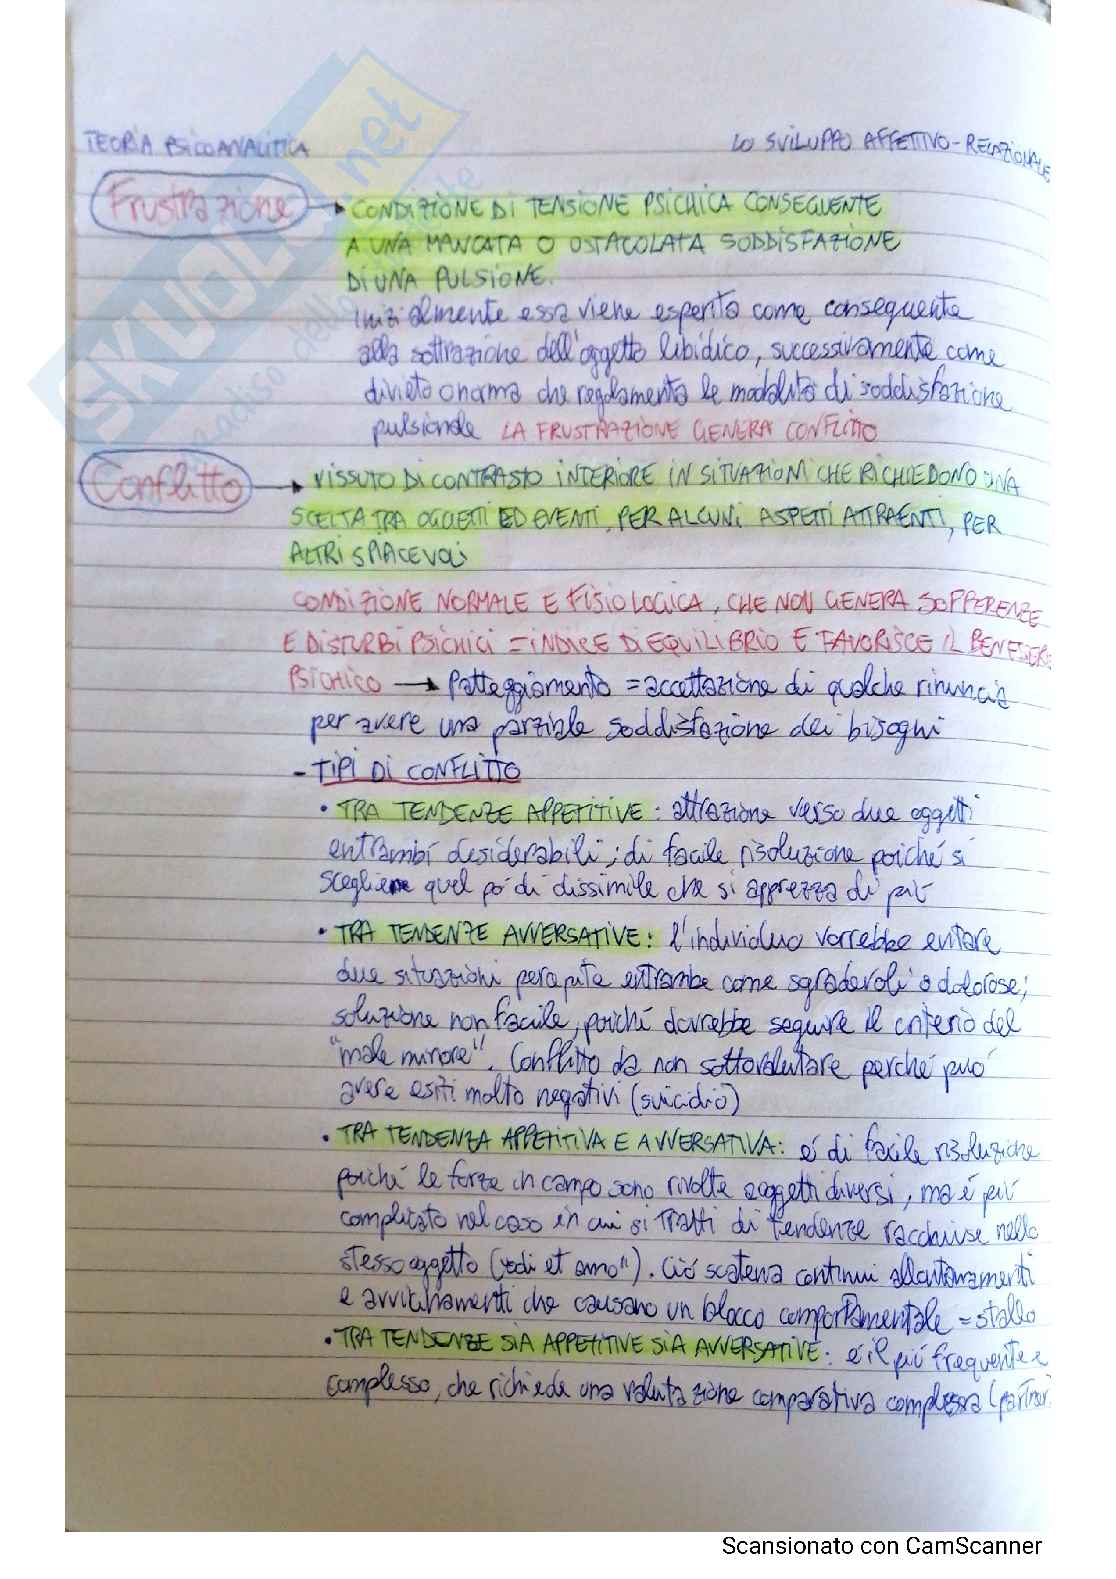 TEORIA PSICOANALITICA
LO SVILUPPO AFFETTIVO-RELAZIONALE
Frustrazione → CONDIZIONE DI TENSIONE PSICHICA CONSEGUENTE
A UNA MANCATA O OSTACOLATA SODDISFAZIONE
DI UNA PULSIONE.
inizialmente essa viene esperita come conseguente
alla sottrazione dell'oggetto libidico, successivamente come
divieto o norma che regolamenta le modalità di soddisfazione
pulsionale LA FRUSTRAZIONE GENERA CONFLITTO
Conflitto → VISSUTO DI CONTRASTO INTERIORE IN SITUAZIONI CHE RICHIEDONO UNA
SCELTA TRA OGGETTI ED EVENTI, PER ALCUNI ASPETTI ATTRAENTI, PER
ALTRI SPIACEVOLI
CONDIZIONE NORMALE E FISIOLOGICA, CHE NON GENERA SOFFERENZE
E DISTURBI PSICHICI = INDICE DI EQUILIBRIO E FAVORISCE IL BENESSERE
PSICHICO → Patteggiamento = accettazione di qualche rinuncia
per avere una parziale soddisfazione dei bisogni
- TIPI DI CONFLITTO
• TRA TENDENZE APPETITIVE: attrazione verso due oggetti
entrambi desiderabili; di facile risoluzione poiché si
sceglie quel po' di dissimile che si apprezza di più
• TRA TENDENZE AVVERSATIVE: l'individuo vorrebbe evitare
due situazioni percepite entrambe come sgradevoli o dolorose;
soluzione non facile, poiché dovrebbe seguire il criterio del
"male minore". Conflitto da non sottovalutare perché può
avere esiti molto negativi (suicidio)
• TRA TENDENZA APPETITIVA E AVVERSATIVA: é di facile risoluzione
poiché le forze in campo sono rivolte a oggetti diversi, ma é più
complicato nel caso in cui si tratti di tendenze racchiuse nello
stesso oggetto ("odi et amo"). Ciò scatena continui allontanamenti
e avvicinamenti che causano un blocco comportamentale = stallo
• TRA TENDENZE SIA APPETITIVE SIA AVVERSATIVE: é il più frequente e
complesso, che richiede una valutazione comparativa complessa (partner)
SKUOLA.net
Scansionato con CamScanner